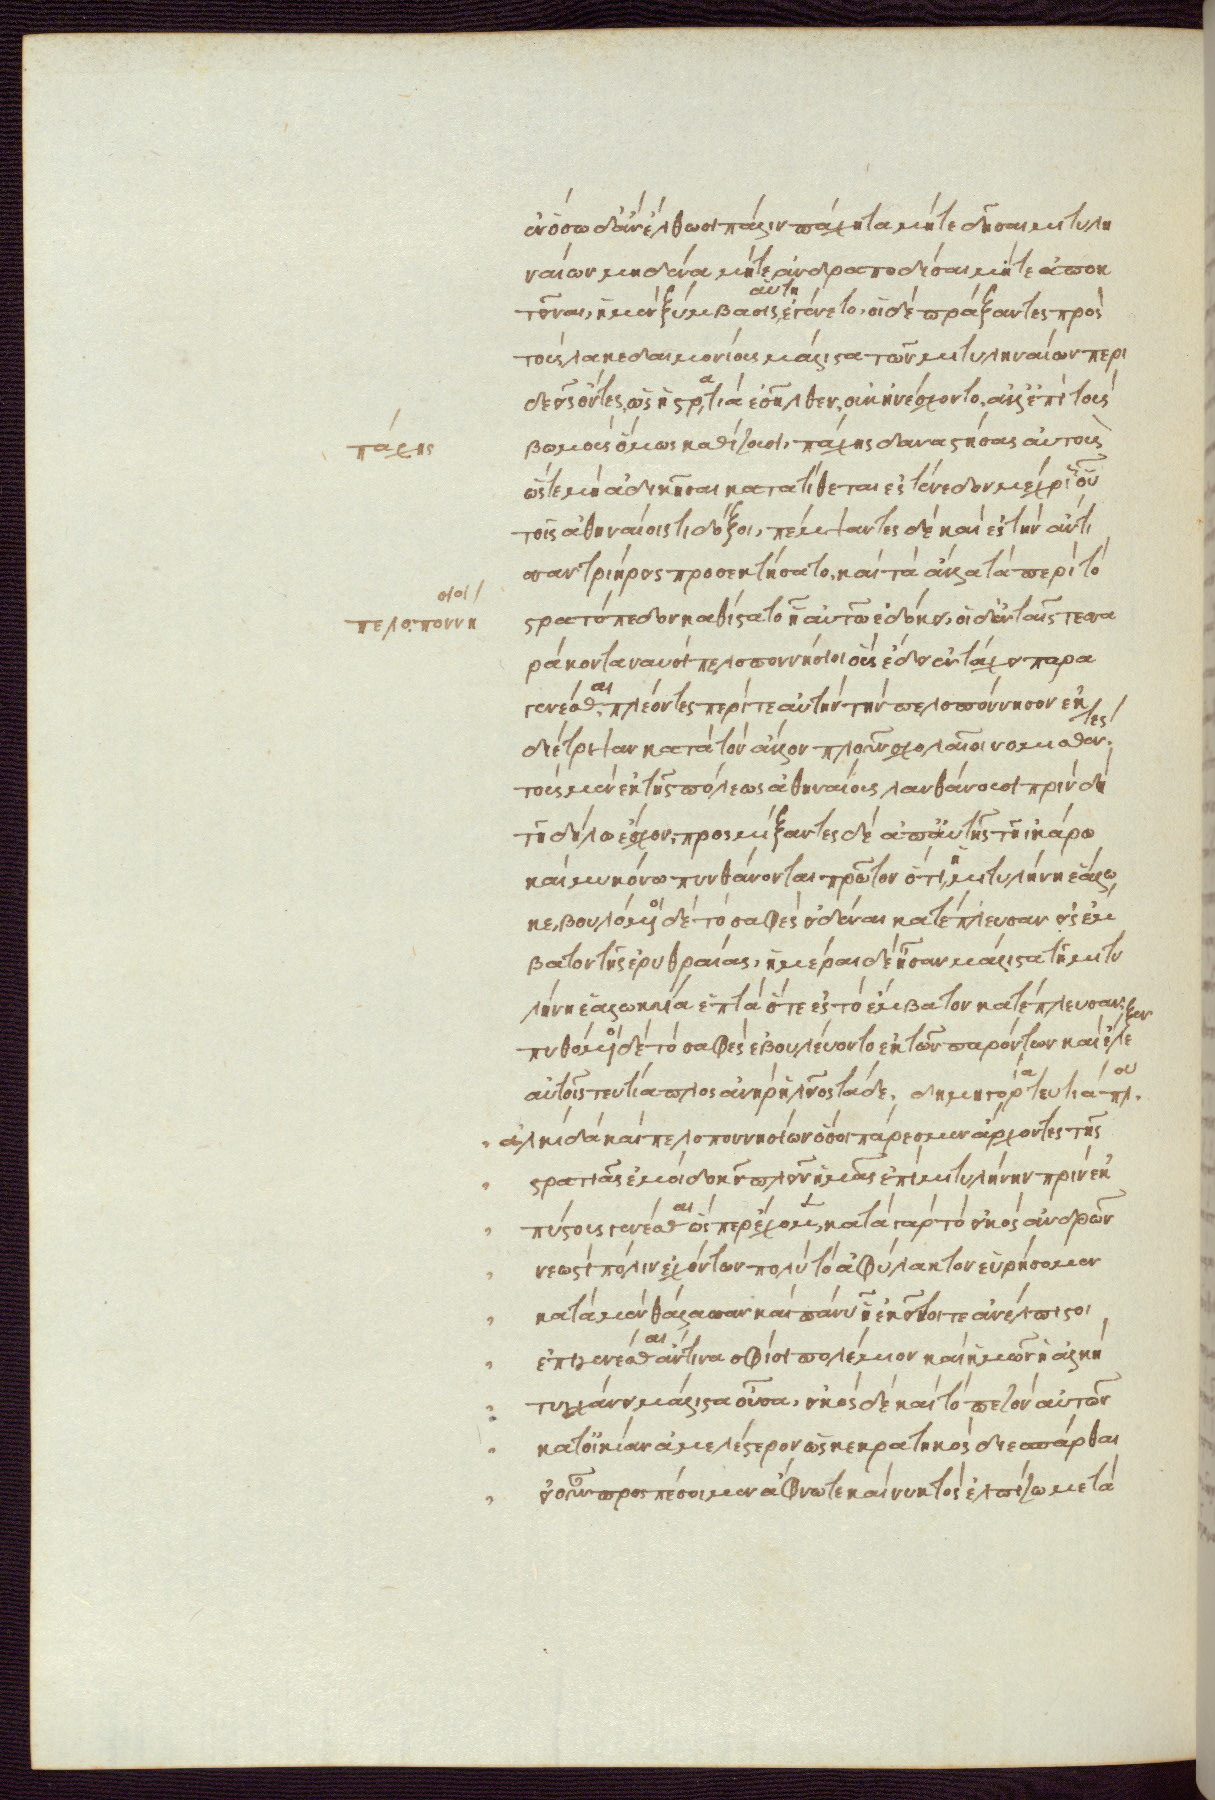 ἐν ὅσῳ δ' ἂν ἔλθωσι πάλιν πάχητα μήτε δῆσαι μιτυλη
ναίων μηδένα μήτε ἀνδραποδίσαι μήτε ἀποκ
τεῖναι, ἡ μὲν ξύμβασις αὕτη ἐγένετο. οἱ δὲ πράξαντες πρὸς
τοὺς λακεδαιμονίους μάλιστα τῶν μιτυληναίων περι
δεεῖς ὄντες, ὡς ἡ στρατιὰ ἐσῆλθεν, οὐκ ἠνέσχοντο, ἀλλ' ἐπὶ τοὺς
πάχης
βωμοὺς ὅμως καθίζουσι, πάχης δ' ἀναστήσας αὐτοὺς
ὥστε μὴ ἀδικῆσαι κατατίθεται ἐς τένεδον μέχρι οὗ
τοῖς ἀθηναίοις τι δόξοι, πέμψαντες δὲ καὶ ἐς τὴν ἄντι
σαν τριήρεις προσεκτήσατο, καὶ τὰ ἄλλα τὰ περὶ τὸ
πελοποννήσιοι
στρατόπεδον καθίστατο ᾗ αὐτῷ ἐδόκει, οἱ δ' ἐν ταῖς τεσσα
ράκοντα ναυσὶ πελοποννήσιοι οὓς ἔδει ἐν τάχει παρα
γενέσθαι, πλέοντες περί τε αὐτὴν τὴν πελοπόννησον ἐν
διέτριψαν κατὰ τὸν ἄλλον πλοῦν σχολαῖοι κομισθέντες
τοὺς μὲν ἐκ τῆς πόλεως ἀθηναίους λανθάνουσι πρὶν δὴ
τῇ δήλῳ ἔσχον, προσμίξαντες δὲ ἀπ' αὐτῆς τῇ ἰκάρῳ
καὶ μυκόνῳ πυνθάνονται πρῶτον ὅτι ἡ μιτυλήνη ἑάλω
κε, βουλόμενοι δὲ τὸ σαφὲς εἰδέναι κατέπλευσαν εἰς ἔμ
βατον τῆς ἐρυθραίας, ἡμέραι δὲ ἦσαν μάλιστα τῇ μιτυ
λήνῃ ἑαλωκυίᾳ ἑπτὰ ὅτε ἐς τὸ ἔμβατον κατέπλευσαν,
πυθόμενοι δὲ τὸ σαφὲς ἐβουλεύοντο ἐκ τῶν παρόντων καὶ ἔλεξεν
αὐτοῖς τευτίαπλος ἀνὴρ ἠλεῖος τάδε. δημηγορία τευτιάπλου.
ἀλκίδα καὶ πελοποννησίων ὅσοι πάρεσμεν ἄρχοντες τῆς
στρατιᾶς ἐμοὶ δοκεῖ πλεῖν ἡμᾶς ἐπὶ μιτυλήνην πρὶν ἐκ
πύστους γενέσθαι ὥσπερ ἔχομεν, κατὰ γὰρ τὸ εἰκὸς ἀνδρῶν
νεωστὶ πόλιν ἐχόντων πολὺ τὸ ἀφύλακτον εὑρήσομεν
κατὰ μὲν θάλασσαν καὶ πάνυ ᾗ ἐκεῖνοί τε ἀνέλπιστοι
ἐπιγενέσθαι ἄν τινα σφίσι πολέμιον καὶ ἡμῶν ἡ ἀλκὴ
τυγχάνει μάλιστα οὖσα, εἰκὸς δὲ καὶ τὸ πεζὸν αὐτῶν
κατ' οἰκίαν ἀμελέστερον ὡς κεκρατηκὸς διεσπάρθαι
εἰ οὖν προσπέσοιμεν ἄφνω τε καὶ νυκτὸς ἐλπίζω μετὰ